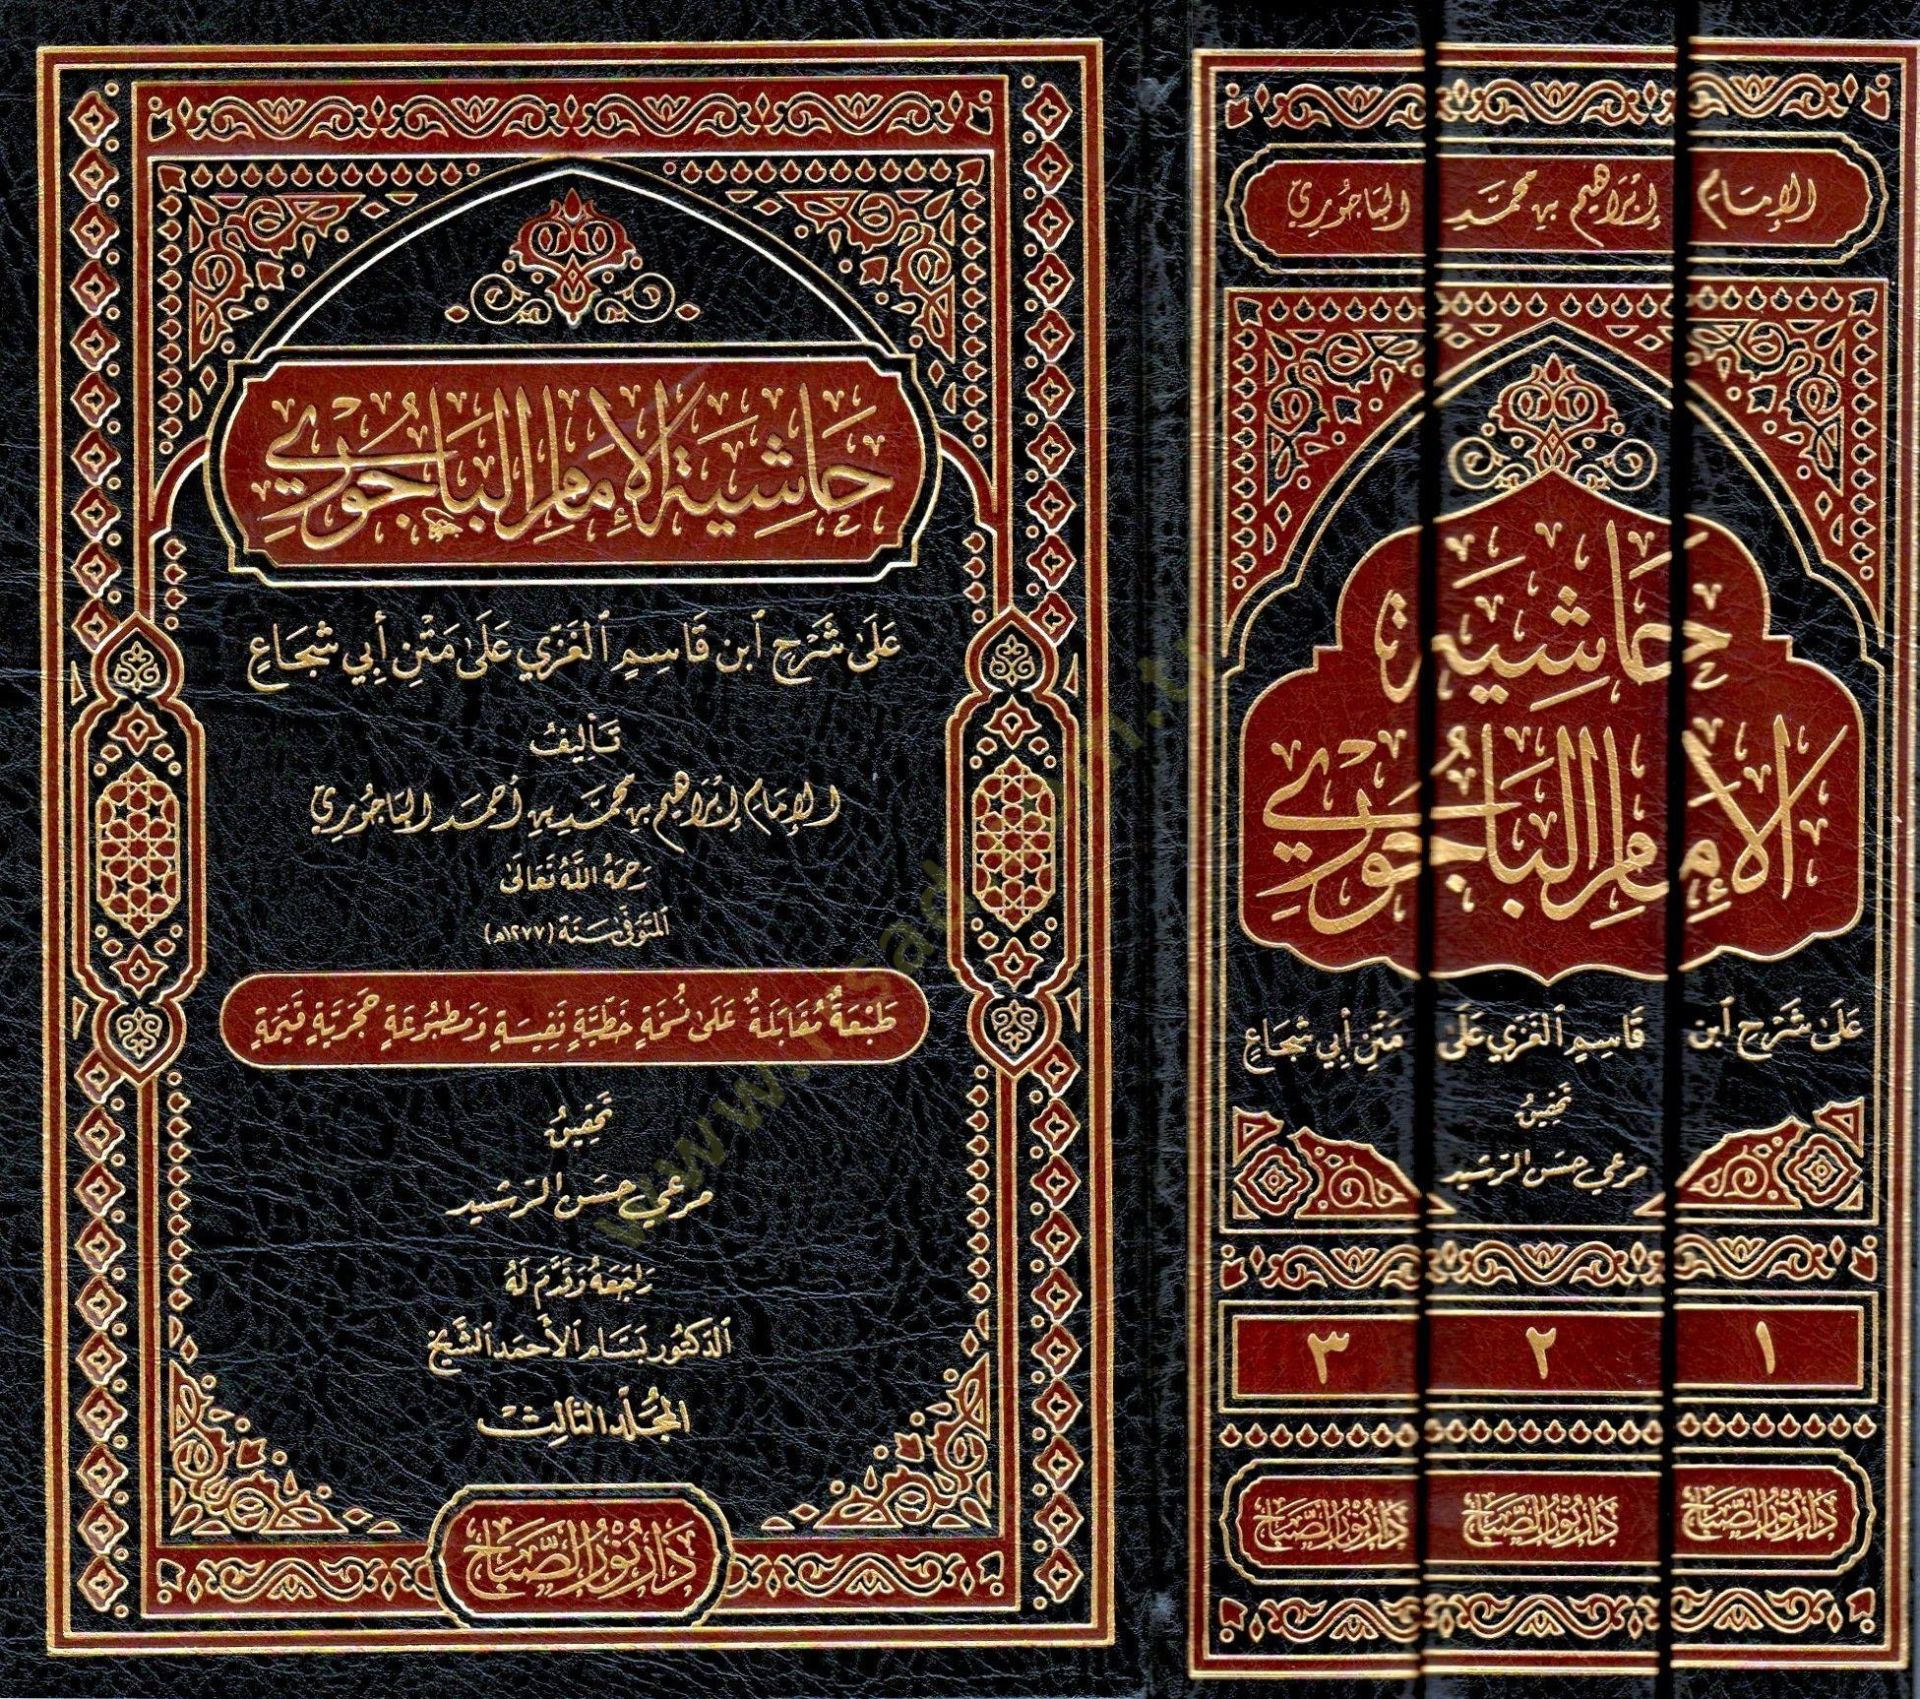 حَاشِيَة الإِمَامِ البَاجُورِيّ
عَلَى شَرْحِ ابْنِ قَاسِمٍ الغَزِّي عَلَى مَتْنِ أَبِي شُجَاعٍ
تَأْلِيفُ
الإِمَامِ إِبْرَاهِيم بن مُحَمَّد بن أَحْمَد البَاجُورِيّ
رَحِمَهُ اللَّهُ تَعَالَى
المُتَوَفَّى سَنَة (١٢٧٧هـ)
طَبْعَةٌ مُقَابَلَةٌ عَلَى نُسْخَةٍ خَطِّيَّةٍ نَفِيسَةٍ وَمَطْبُوعَةٍ حَجَرِيَّةٍ قَيِّمَةٍ
تَحْقِيقُ
مرعي حسن الرشيد
رَاجَعَهُ وَقَدَّمَ لَهُ
الدكتور بَسَّام الأَحْمَد الشَّيْخ
المُجَلَّد الثَّالِث
دَارُ نُورِ الصَّبَاحِ
الإِمَام إِبْرَاهِيم بن مُحَمَّد البَاجُورِيّ
حَاشِيَة
الإِمَامِ البَاجُورِيّ
عَلَى شَرْحِ ابْنِ قَاسِمٍ الغَزِّي عَلَى مَتْنِ أَبِي شُجَاعٍ
تَحْقِيقُ
مرعي حسن الرشيد
١ ٢ ٣
دَارُ نُورِ الصَّبَاحِ دَارُ نُورِ الصَّبَاحِ دَارُ نُورِ الصَّبَاحِ